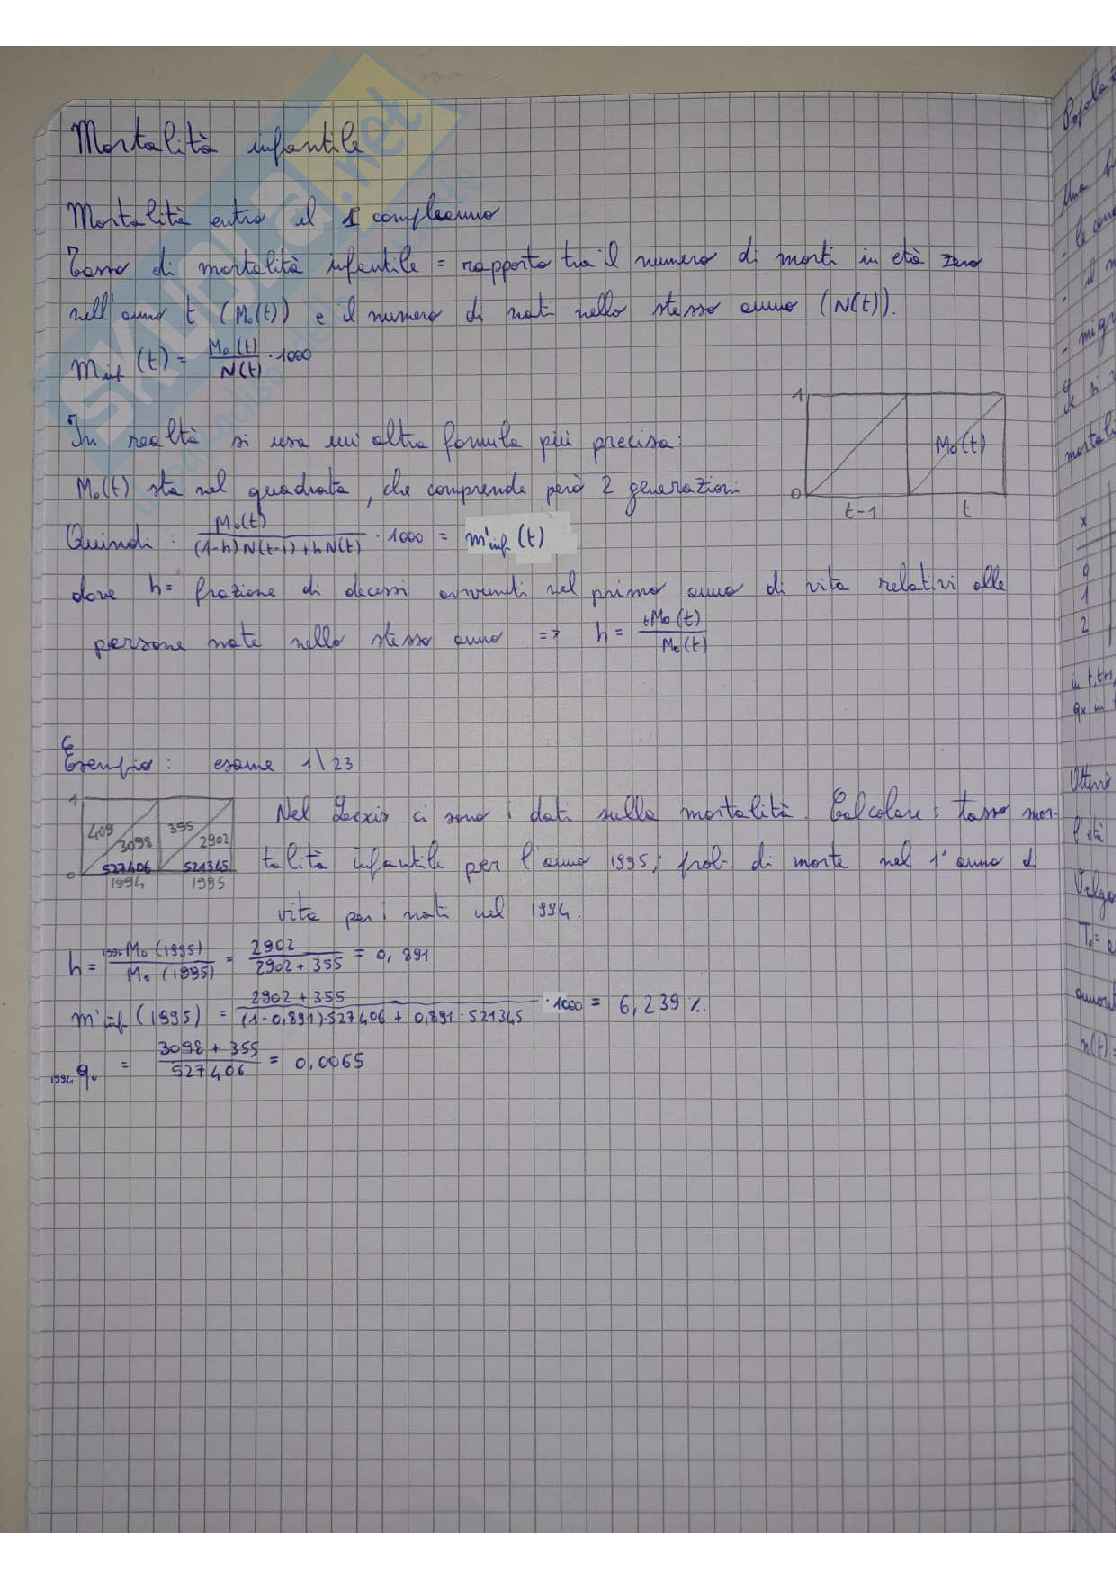 Mortalità infantile
Mortalità entro il 1 compleanno
Tasso di mortalità infantile = rapporto tra il numero di morti in età zero
nell'anno t (M₀(t)) e il numero di nati nello stesso anno (N(t)).
m inf (t) = M₀(t) / N(t) · 1000
In realtà si usa un'altra formula più precisa:
M₀(t) sta nel quadrato, che comprende però 2 generazioni
1
M₀(t)
0
t-1 t
Quindi: M₀(t) / (1-h)N(t-1)+hN(t) · 1000 = m'inf (t)
dove h= frazione di decessi avvenuti nel primo anno di vita relativi alle
persone nate nello stesso anno => h = tM₀(t) / M₀(t)
Esempio: esame 1\23
1
409 3098 355 2902
527406 521345
0
1994 1995
Nel Lexis ci sono i dati sulla mortalità. Calcolare: tasso mor-
talità infantile per l'anno 1995; prob. di morte nel 1° anno d
vita per i nati nel 1994.
h = 1995M₀(1995) / M₀(1995) = 2902 / 2902+355 = 0,891
m'inf (1995) = 2902+355 / (1-0,891)·527406 + 0,891·521345 · 1000 = 6,239 ‰
1994q₀ = 3098+355 / 527406 = 0,0065
Una
migr
mortali
x
0
1
2